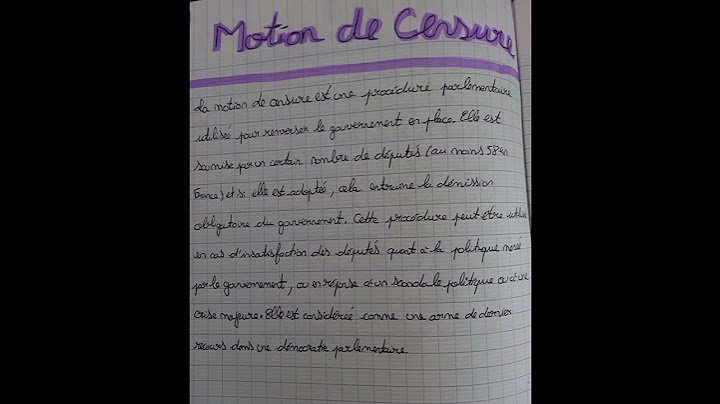 Motion de Censure
La motion de censure est une procédure parlementaire
utilisée pour renverser le gouvernement en place. Elle est
soumise par un certain nombre de députés (au moins 58 en
France) et si elle est adoptée, cela entraine la démission
obligatoire du gouvernement. Cette procédure peut être utilisée
en cas d'insatisfaction des députés quant à la politique menée
par le gouvernement, ou en réponse à un scandale politique ou à une
crise majeure. Elle est considérée comme une arme de dernier
recours dans une démocratie parlementaire.